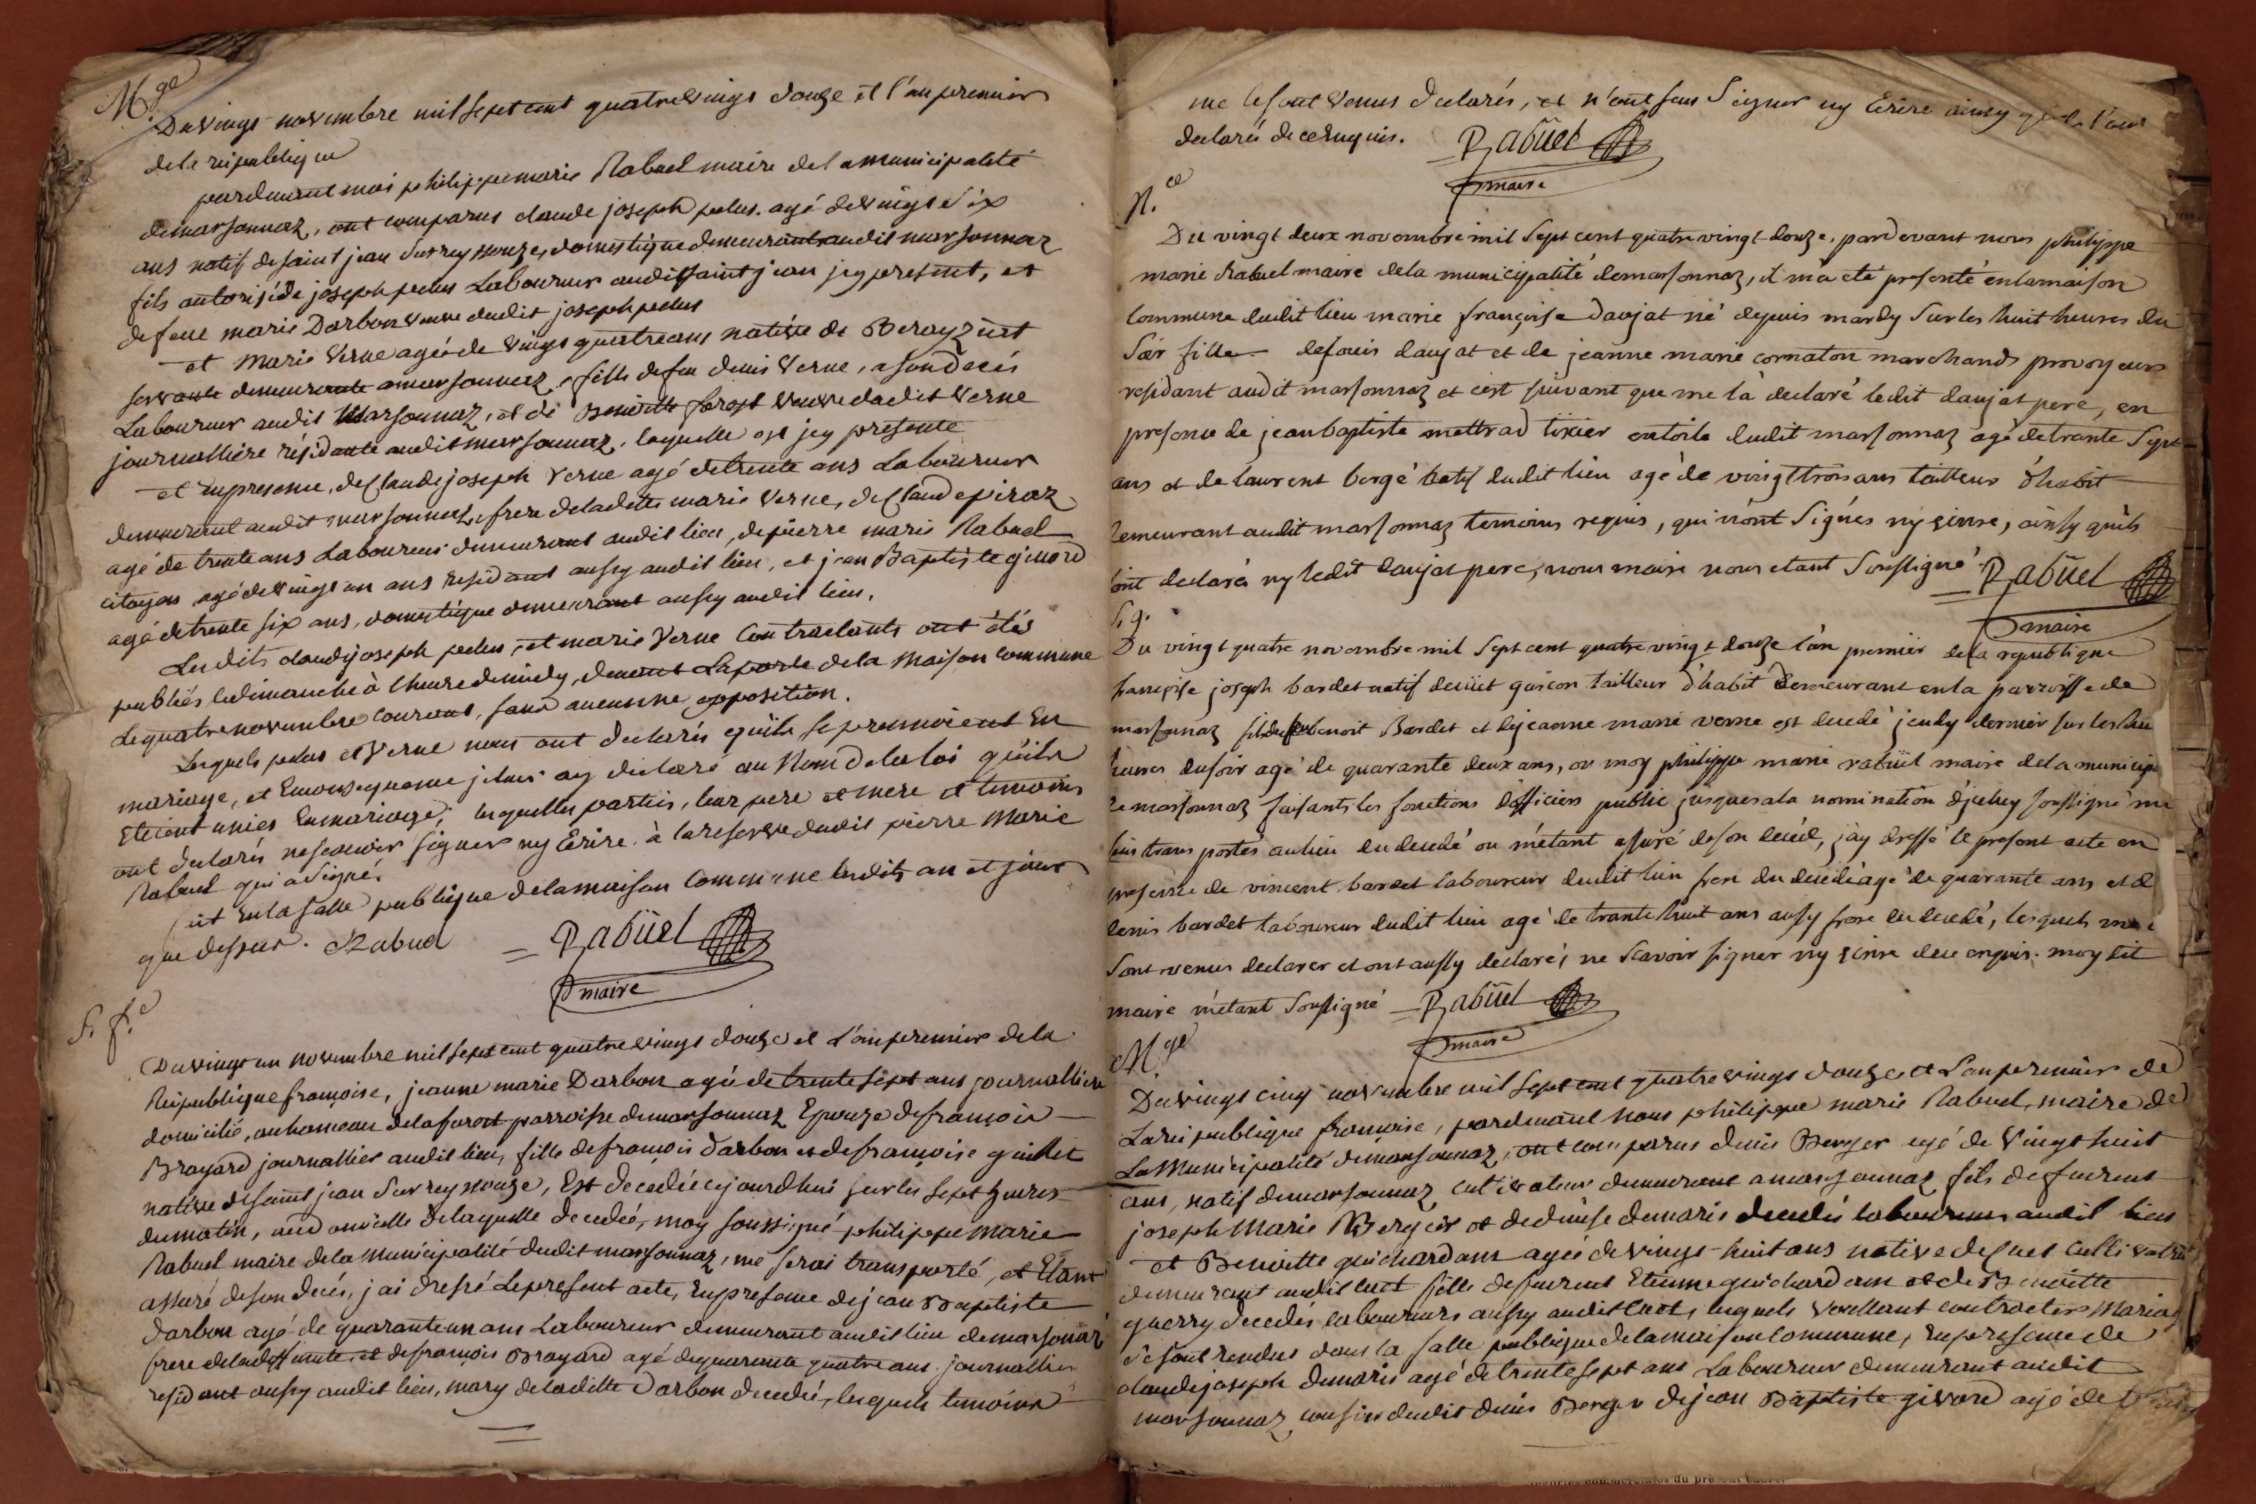 M.ge
Du vingt novembre mil sept cent quatre vingt douze et l'an premier
de la republique
pardevant moi philippe marie Rabuel maire de la municipalité
de marsonnaz, ont comparus claude joseph pelus agé de vingt six
ans natif de saint jean sur reyssouze, domestique demeurant audit marsonnaz
fils autorisé de joseph pelus Laboureur audit saint jean jcy present, et
de feue marie Darbon veuve dudit joseph pelus
et marie Verne agée de vingt quatre ans native de
servante demeurante a marsonnaz, fille de feu denis Verne, a son deces
Laboureur audit Marsonnaz, et de Benoitte forest veuve dudit Verne
journalliere résidante audit marsonnaz, laquelle est jcy presente
et en presence, de Claude joseph Verne agé de trente ans Laboureur
demeurant audit marsonnaz, frere de ladette marie Verne, de Claude piroz
agé de trente ans Laboureur demeurant audit lieu, de pierre marie Rabuel
citoyen agé de vingt un ans residant aussy audit lieu, et jean Baptiste givord
agé de trente six ans, domestique demeurant aussy audit lieu.
Lesdits claude joseph pelus, et marie Verne Contractants ont étés
publiés le dimanche à l'heure de midy, devant La porte de la Maison commune
le quatre novembre courant, sans aucunne opposition.
Lesquels pelus et Verne nous ont declarés qu'ils se prennoient En
mariage, et En consequence je leur ay declaré au Nom de la loi qu'ils
Etoient unies En mariage, lesquelles parties, leur pere et mere et temoins
ont declarés ne scavoir signer ny Ecrire à la reserve dudit pierre Marie
Rabuel qui a signé.
fait En la salle publique de la maison Commune lesdits an et jour
que dessus. Rabuel = Rabüel
maire
S. f.e
Du vingt un novembre mil sept cent quatre vingt douze et L'an premier de la
République françoise, jeanne marie Darbon agée de trente sept ans journalliere
domicilié, au hameau de la forest parroisse de marsonnaz Epouze de françois
Brayard journallier audit lieu, fille de françois darbon et de françoise guillet
native de saint jean sur reyssouze, Est decedée ce jourdhui sur les sept heures
du matin, au domicille de laquelle decedée, moy soussigné philippe Marie
Rabuel maire de la municipalité dudit marsonnaz, me serai transporté, et Etant
assuré de son deces, j'ai dressé Le present acte, En presence de jean Baptiste
darbon agé de quarante un ans Laboureur demeurant audit lieu de marsonnaz
frere de la deffunte, et de françois Brayard agé de quarante quatre ans journallier
residant aussy audit lieu, mary de ladette Darbon decedée, lesquels temoins
me le sont venus declarés, et n'ont sceus Signer ny Ecrire ainsy qu'ils l'ont
declarés de ce enquis. Rabüel
maire
N.ce
Du vingt deux novembre mil sept cent quatre vingt douze, pardevant nous philippe
marie Rabuel maire de la municipalité de marsonnaz, il m'a été presenté en la maison
commune dudit lieu marie françoise daujat né depuis mardy sur les huit heures du
soir fille de louis daujat et de jeanne marie cornaton marchands provoyeurs
residant audit marsonnaz et c'est suivant que me l'a declaré ledit daujat pere, en
presence de jean baptiste mettrad tixier en toile dudit marsonnaz agé de trante sept
ans et de laurent bergé natif dudit lieu agé de vingt trois ans tailleur d'habit
demeurant audit marsonnaz temoins requis, qui n'ont signés ny ecrire, ainsy qu'ils
ont declaré ny ledit daujat pere, nous maire nous etant soussigné. Rabüel
maire
S. g.
Du vingt quatre novembre mil sept cent quatre vingt douze l'an premier de la republique
françoise joseph bardet natif garcon tailleur d'habit demeurant en la parroisse de
marsonnaz fils de feu benoit Bardet et de jeanne marie verne est decedé jeudy dernier sur les huit
heures du soir agé de quarante deux ans, ou moy philippe marie rabüel maire de la municipa
de marsonnaz faisants les fonctions d'officiers public jusques a la nomination d'jceluy soussigné me
suis trans portés au lieu du decedé ou m'étant assuré de son decéd, j'ay dressé le present acte en
presence de vincent bardet laboureur dudit lieu frere du decedé agé de quarante ans et de
denis bardet laboureur dudit lieu agé de trante huit ans aussy frere du decedé, lesquels me
sont venus declarer et ont aussy declarés ne scavoir signer ny ecrire de ce enquis. moy dit
maire m'étant soussigné Rabüel
maire
M.ge
Du vingt cinq novembre mil sept cent quatre vingt douze et L'an premier de
La republique françoise, pardevant nous philippe marie Rabuel, maire de
La Municipalité de marsonnaz, ont comparus denis Berger agé de vingt huit
ans, natif de marsonnaz cultivateur demeurant a marsonnaz fils de furent
joseph Marie Berger et de denise demarie decedés laboureurs audit lieu
et Benoitte guichardam agée de vingt huit ans native de Cuet cultivatrice
demeurant audit Cuet fille de furent Etienne guichardam et de Benoitte
guerry decedés laboureurs aussy audit Cuet, lesquels voullant contracter Mariage
se sont rendus dans la salle publique de la maison commune, En presence de
claude joseph demarie agé de trente sept ans Laboureur demeurant audit
marsonnaz cousin dudit denis Berger de jean Baptiste givord agé de